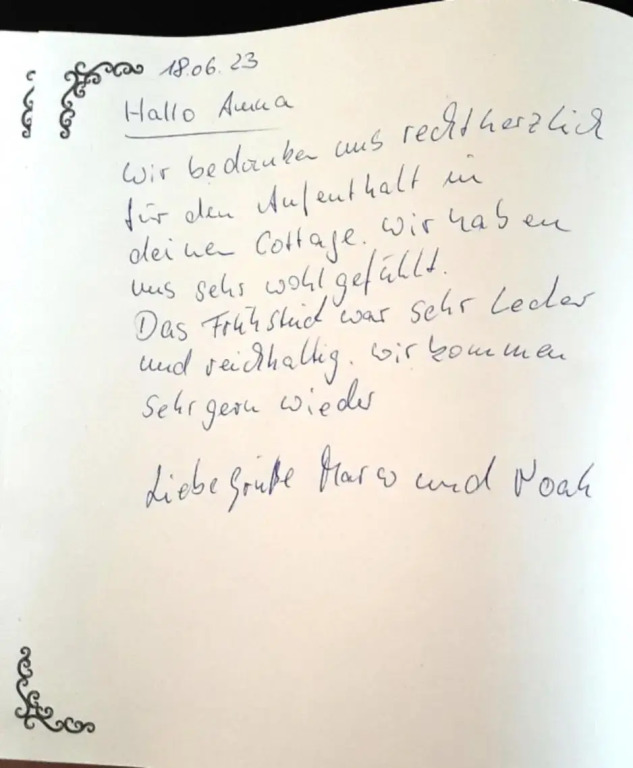 18.06.23
Hallo Anna
Wir bedanken uns rechtherzlich
für den Aufenthalt in
deinen Cottage. Wir haben
uns sehr wohl gefühlt.
Das Frühstück war sehr lecker
und reichhaltig. Wir kommen
sehr gern wieder
Liebe Grüße Marco und Noah